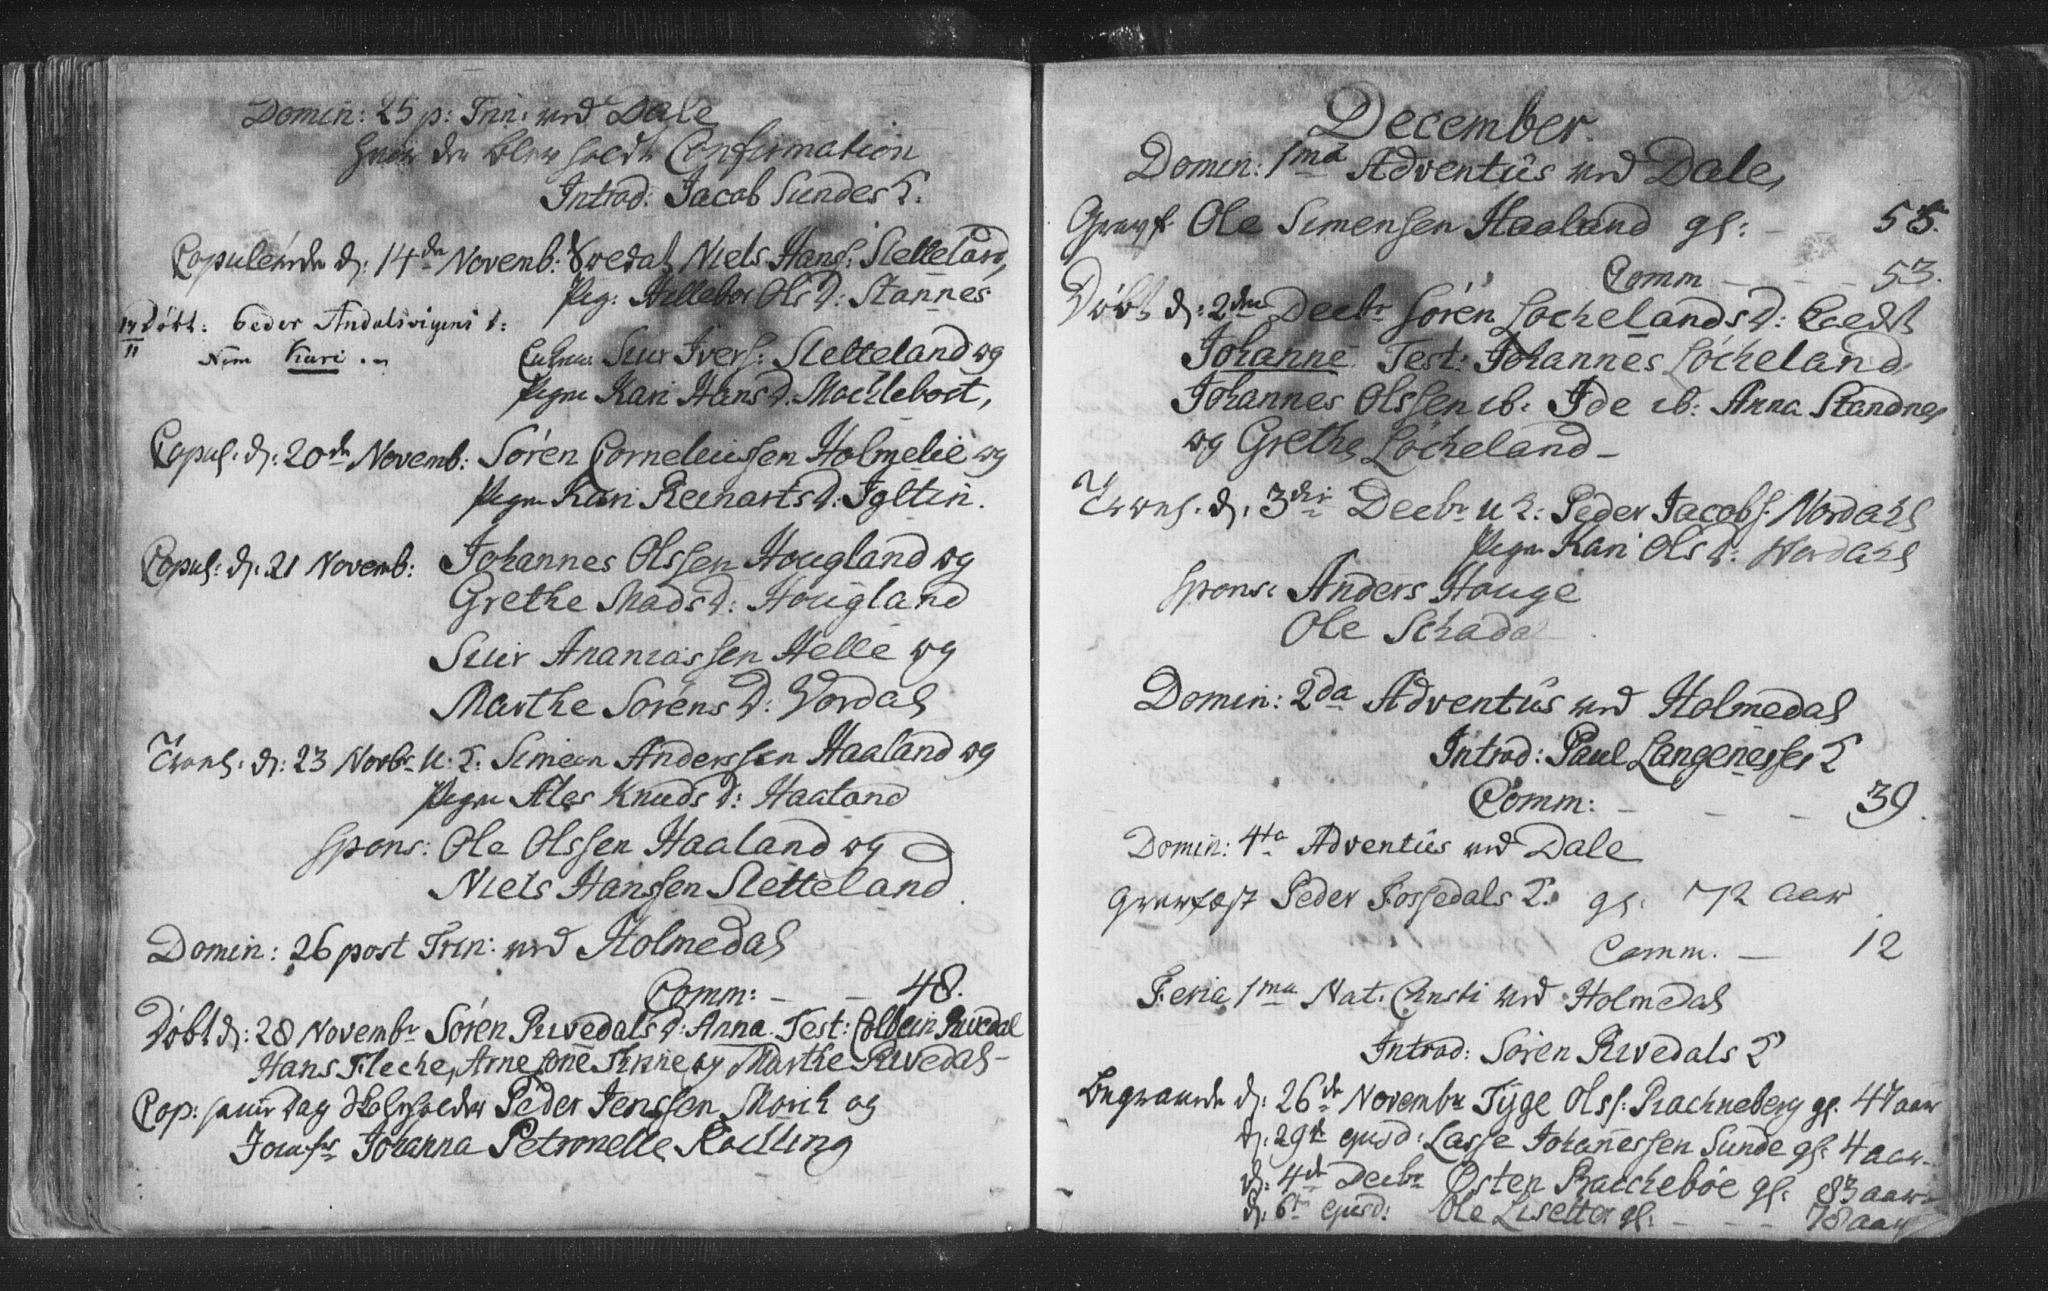 Domin: 25 p: Trin: ved Dale
hvor der blev holdt Confirmation
Introd: Jacob Sundes K.
Copulerede d: 14de Novemb: Niels Hans: Sletteland,
Pig: Hillebor Ols D: Stannes
17/11 Døbt: Peder Andalsvigens d:
Nom Kari
Siur Ivers: Sletteland og
Pigen Kari Hans D. Mochlebost,
Copul. d: 20de Novemb: Søren Corneliussen Holmelie og
Pigen Kari Reinarts D: Igltin.
Copul: d. 21 Novemb: Johannes Olssen Hougland og
Grethe Mads D: Hougland
Siur Ananiassen Helle og
Marthe Sørens D: Vordal
Trol. d: 23 Novbr U. K: Simeon Anderssen Haaland og
Pigen Ales Knuds D: Haaland
Spons: Ole Olssen Haaland og
Niels Hanssen Sletteland
Domin: 26 post Trin: ved Holmedal
Comm: - - 48.
Døbt d: 28 Novembr Søren Rivedals D: Anna. Test: Colbein Rivedal
Hans Fleche, Arne og Marthe Rivedal -
Cop: samme Dag Peder Jenssen Morch og
Jomfr Johanna Petronelle Rochling
December.
Domin: 1ma Adventus ved Dale,
Gravf. Ole Simensen Haaland gl: - - 55.
Comm - - - 53.
Døbt d: 2den Decbr Søren Løchelands D: kaldt
Johanne. Test: Johannes Løcheland,
Johannes Olssen ib. Ide ib: Anna Standnes
og Grethe Løcheland -
Trol. d. 3die Decbr U K: Peder Jacobs: Nordahl
Pigen Kari Ols D: Nordahl
Spons: Anders Houge
Ole Schada
Domin: 2da Adventus ved Holmedal
Introd: Paul Langenesses K
Comm: - - - 39.
Domin: 4ta Adventus ved Dale
Gravfæst Peder Fossedals K: gl. 72 aar
Comm. - 12
Feria 1ma Nat. Christi ved Holmedal
Introd: Søren Rivedals K
Begravede d: 26de Novembr Tÿge Ols: Rachneberg gl. 47 aar
d: 29d ejusd: Lasse Johannessen Sunde gl: 4 aar.
d: 4de Decbr Østen Racchebøe gl: 83 aar
d. 6t ejusd: Ole Lisetter gl: - - - 78 aar